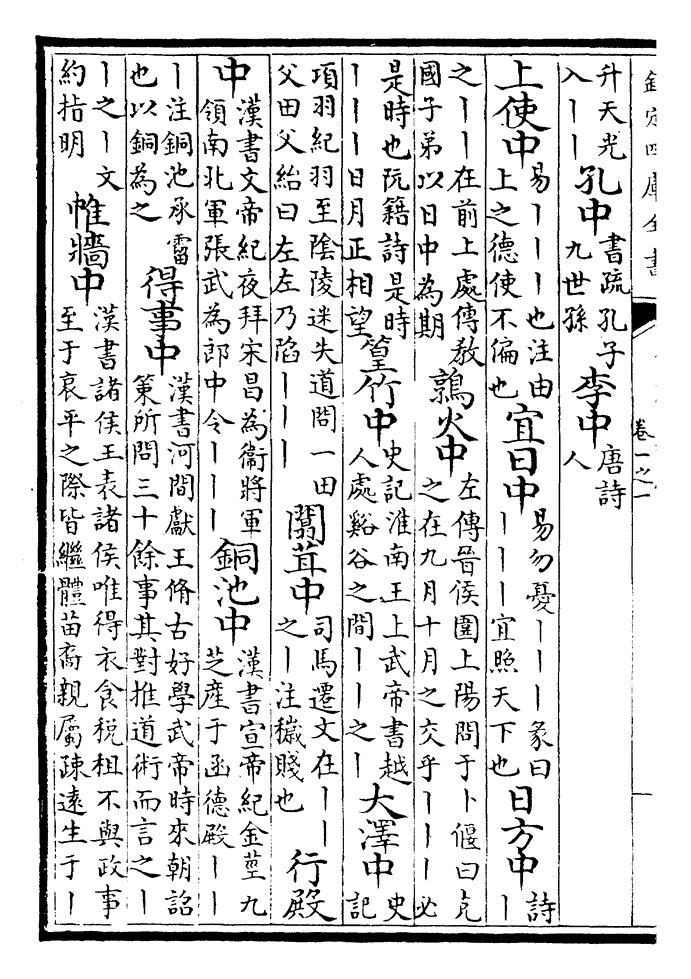 欽定四庫全書
卷一之一
升天光
入丨丨孔中書疏孔子
九世孫李中唐詩
人
上使中易丨丨丨也注由
上之德使不偏也宜日中易勿憂丨丨丨彖曰
丨丨丨宜照天下也日方中詩
丨
之丨丨在前上處傳教
國子弟以日中為期鶉火中左傳晉侯圍上陽問于卜偃曰克
之在九月十月之交乎丨丨丨必
是時也阮籍詩是時
丨丨丨日月正相望篁竹中史記淮南王上武帝書越
人處谿谷之間丨丨之丨大澤中史
記
項羽紀羽至陰陵迷失道問一田
父田父紿曰左左乃陷丨丨丨闒茸中司馬遷文在丨丨
之丨注穢賤也行殿
中漢書文帝紀夜拜宋昌為衞將軍
領南北軍張武為郎中令丨丨丨銅池中漢書宣帝紀金莖九
芝産于函德殿丨丨
丨注銅池承霤
也以銅為之得事中漢書河間獻王脩古好學武帝時來朝詔
策所問三十餘事其對推道術而言之丨
丨之丨文
約指明帷牆中漢書諸侯王表諸侯唯得衣食税租不與政事
至于哀平之際皆繼體苗裔親屬疎遠生于丨